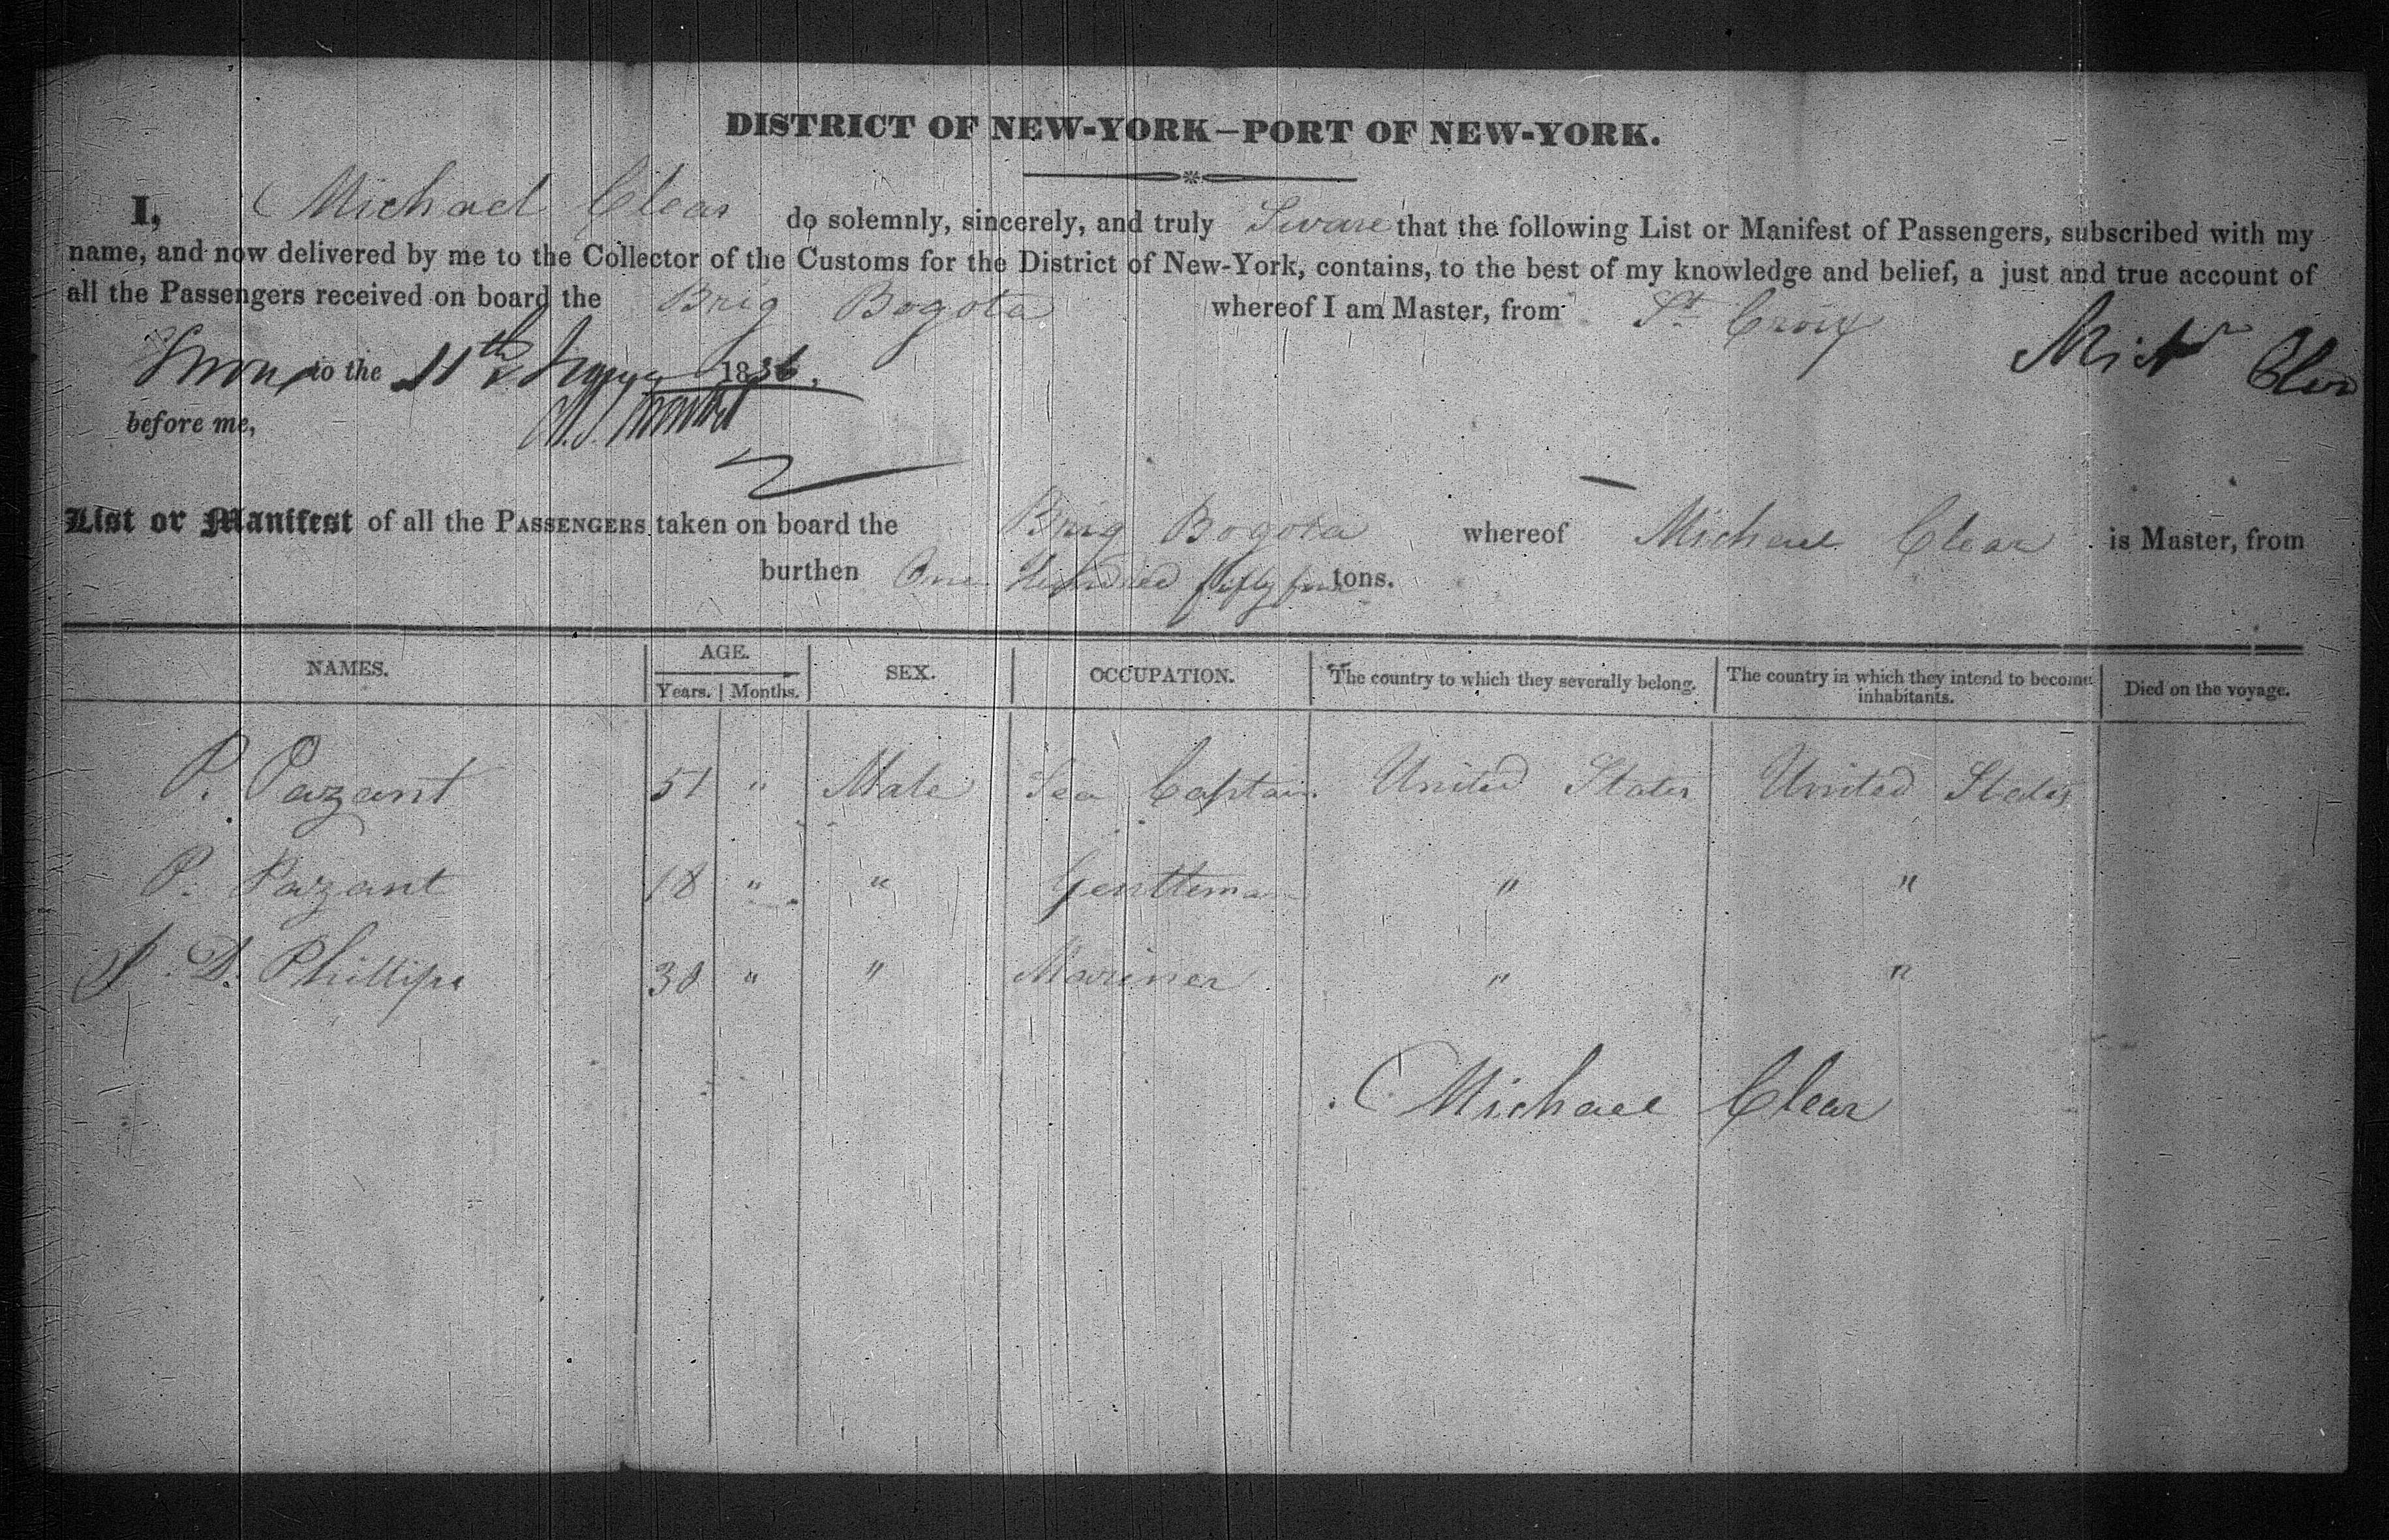 DISTRICT OF NEW-YORK—PORT OF NEW-YORK.
I, Michael Clear do solemnly, sincerely, and truly Sware that the following List or Manifest of Passengers, subscribed with my
name, and now delivered by me to the Collector of the Customs for the District of New-York, contains, to the best of my knowledge and belief, a just and true account of
all the Passengers received on board the Brig Bogota whereof I am Master, from St. Croix
Sworn to the 11th 1836, Clear
before me,
List or Manifest of all the PASSENGERS taken on board the Brig Bogota whereof Michael Clear is Master, from
burthen One Hundred fifty tons.
NAMES. AGE. SEX. OCCUPATION. The country to which they severally belong. The country in which they intend to become inhabitants. Died on the voyage.
Years. Months.
P. Pazant 51 " Male Sea Captain. United States United States
P. Pazant 18 " " Gentleman " "
J. D. Phillips 30 " " Mariner " "
Michael Clear